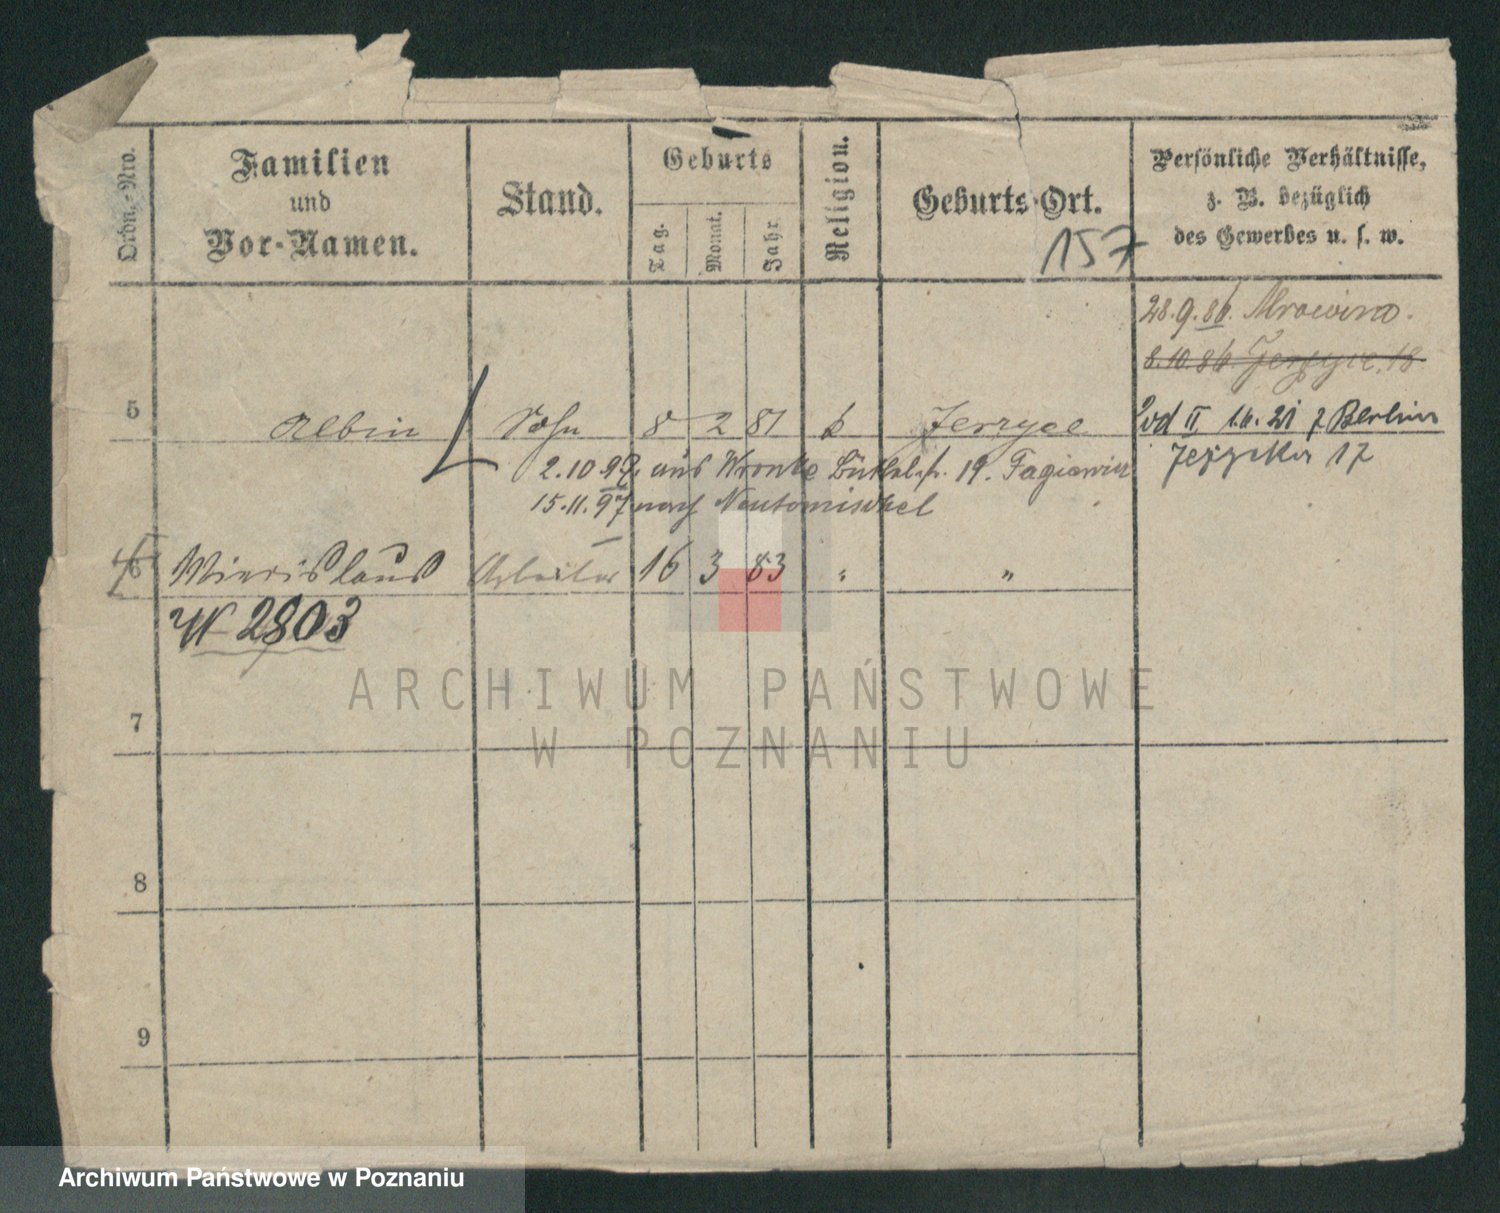 Ordn.-Nro.
Familien
und
Vor-Namen.
Stand.
Geburts
Tag.
Monat.
Jahr
Religion.
Geburts-Ort.
157
Persönliche Verhältnisse,
z. B. bezüglich
des Gewerbes u. s. w.
28.9.86. Mrowino.
8.10.86 Jerzyce 18
5 Albin Sohn 8 2 81 k Jerzyce
II 16. 21 Berlin
17
2.10 97. aus Wronke 19.
15.11.97 nach Neutomischel
6 Wierislaus Arbeiter 16 3 83 " "
W 2803
7
8
9
ARCHIWUM PAŃSTWOWE
W POZNANIU
Archiwum Państwowe w Poznaniu